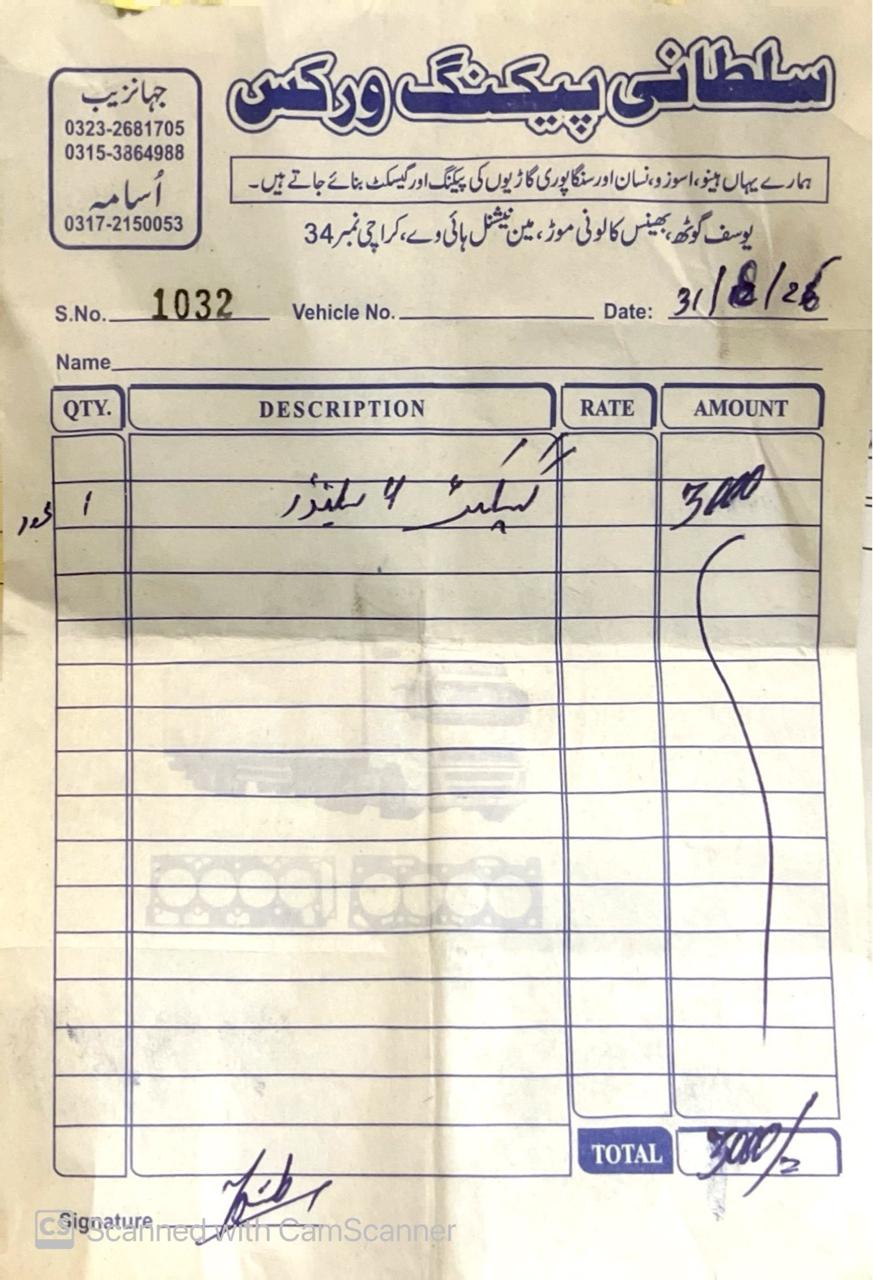 سلطانی پیکنگ ورکس
جہانزیب
0323-2681705
0315-3864988
اُسامہ
0317-2150053
ہمارے یہاں ہینو، اسوزو، نسان اور سنگاپوری گاڑیوں کی پیکنگ اور گیسکٹ بنائے جاتے ہیں۔
یوسف گوٹھ، بھینس کالونی موڑ، مین نیشنل ہائی وے، کراچی نمبر 34
S.No. 1032 Vehicle No. Date: 31/
Name
QTY. DESCRIPTION RATE AMOUNT
1 سلینڈر 3000
TOTAL 3000/
Signature
CS Scanned with CamScanner